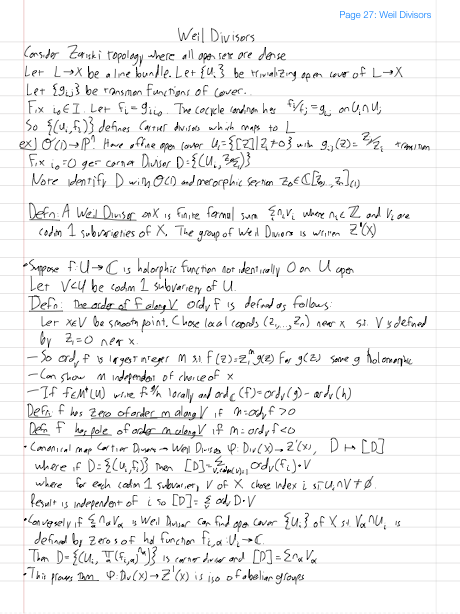 Page 27: Weil Divisors
Weil Divisors
Consider Zariski topology where all open sets are dense
Let L→X be a line bundle. Let {U_i} be trivializing open cover of L→X
Let {g_ij} be transition functions of cover.
Fix i_0∈I. Let f_i = g_{i i_0}. The cocycle condition has f_i/f_j = g_ij on U_i∩U_j
So {(U_i, f_i)} defines Cartier divisors which maps to L
ex] O(1)→P^n. Have affine open cover U_i={[Z]|Z_i≠0} with g_ij(z)=Z_j/Z_i transition
Fix i_0=0 get Cartier Divisor D={(U_i, Z_0/Z_i)}
Note identify D with O(1) and meromorphic section Z_0∈C[Z_0,...,Z_n]_(1)
Defn: A Weil Divisor on X is finite formal sum Σn_iV_i where n_i∈Z and V_i are
codim 1 subvarieties of X. The group of Weil Divisors is written Z^1(X)
• Suppose f:U→C is holomorphic function not identically 0 on U open
Let V⊂U be codim 1 subvariety of U.
Defn: The order of f along V ord_v f is defined as follows:
Let x∈V be smooth point. Chose local coords (z_1,...,z_n) near x st. V is defined
by z_1=0 near x.
– So ord_v f is largest integer m s.t. f(z)=z_1^m g(z) for g(z) some g holomorphic
– Can show m independent of choice of x
– If f∈M*(U) write f=g/h locally and ord_v(f)=ord_v(g)-ord_v(h)
Defn: f has zero of order m along V if m=ord_v f>0
Defn f has pole of order m along V if m=ord_v f<0
• Canonical map Cartier Divisors→Weil Divisors φ:Div(X)→Z^1(X), D↦[D]
where if D={(U_i,f_i)} then [D]=Σ_{V, codim(V)=1} ord_v(f_i)·V
where for each codim 1 subvariety V of X chose index i s.t. U_i∩V≠∅.
Result is independent of i so [D]=Σ ord_v D·V
• Conversely if Σn_αV_α is Weil Divisor can find open cover {U_i} of X s.t. V_α∩U_i is
defined by zeros of hol function f_{i,α}:U_i→C.
Then D={(U_i, Π(f_{i,α})^{n_α})} is Cartier divisor and [D]=Σn_αV_α
• This proves Thm. φ:Div(X)→Z^1(X) is iso. of abelian groups